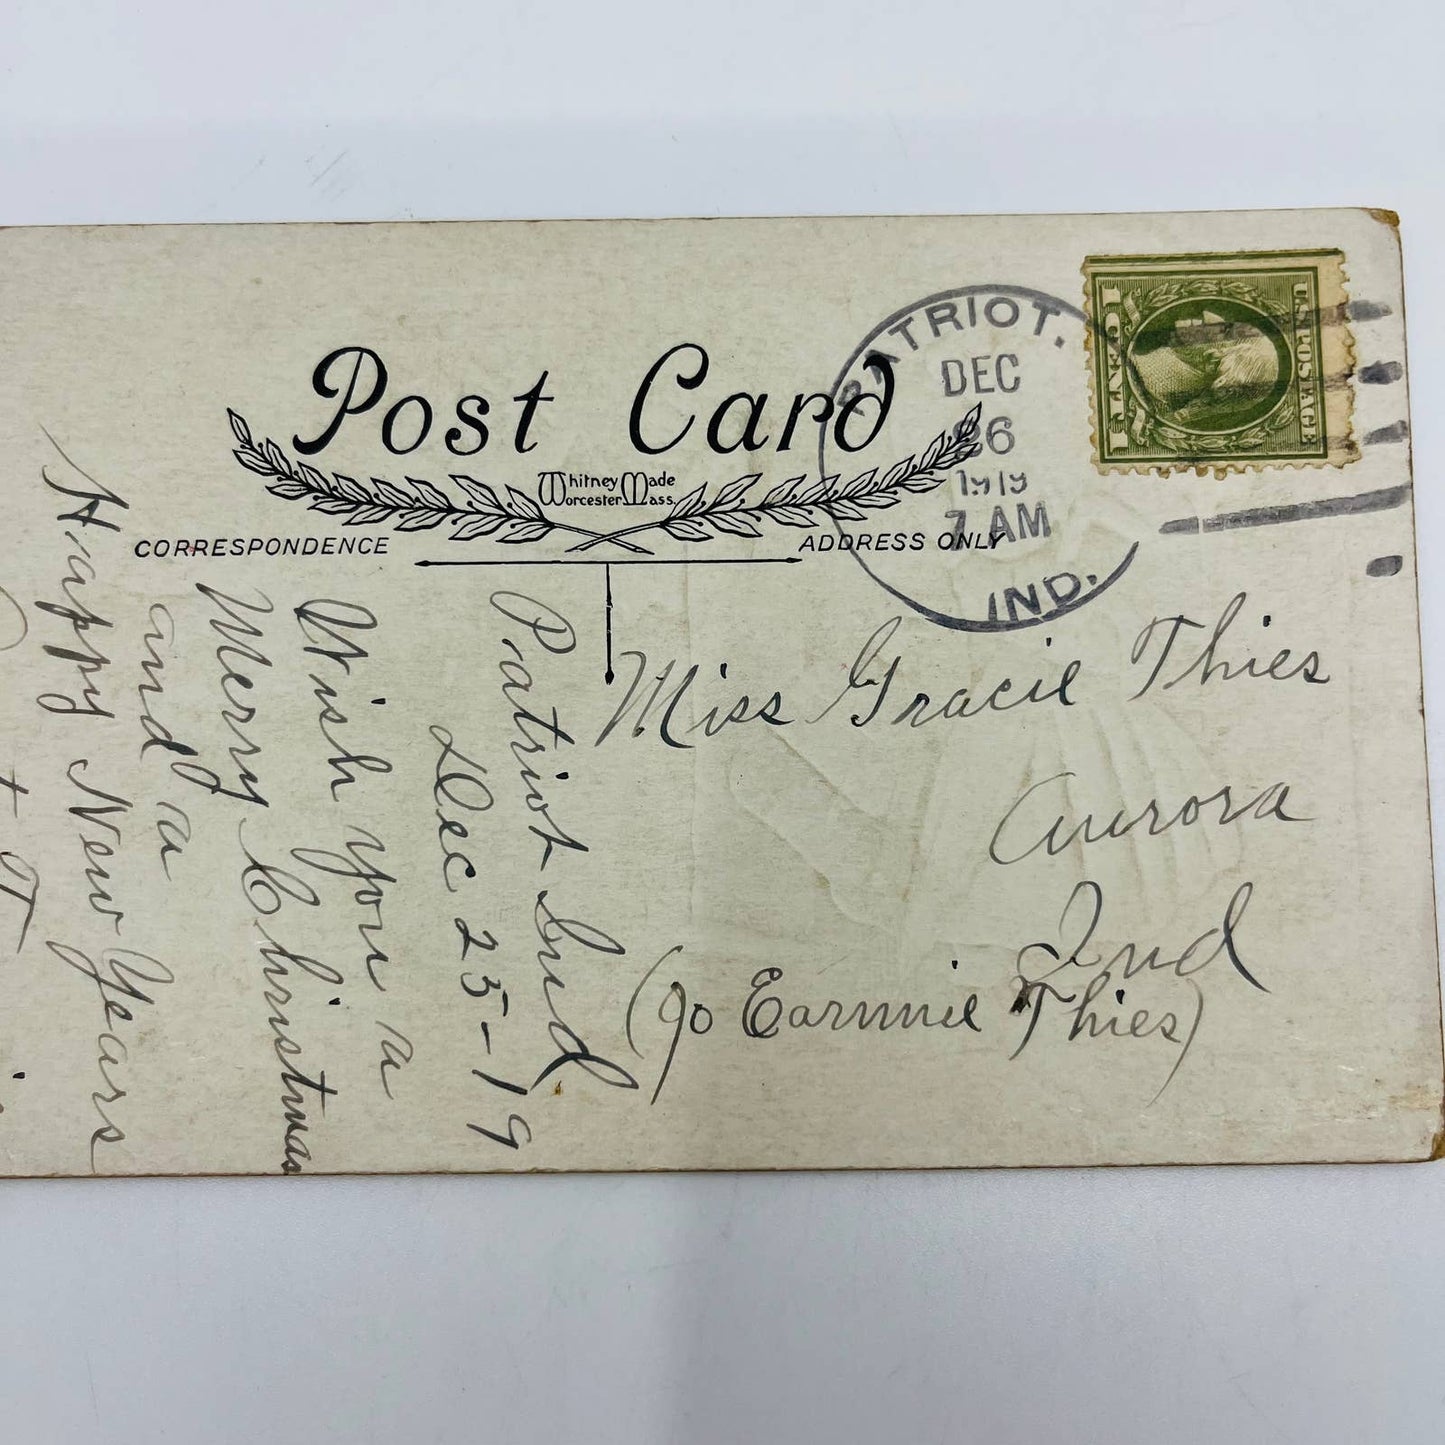 Post Card
Whitney Made
Worcester Mass.
CORRESPONDENCE
ADDRESS ONLY
PATRIOT.
DEC
26
1919
7 AM
IND.
U.S. POSTAGE
1 CENT 1
Patriot Ind
Dec 25-19
Wish you a
Merry Christmas
and a
Happy New Years
Miss Gracie Thies
Aurora
Ind
(℅ Earnnie Thies)